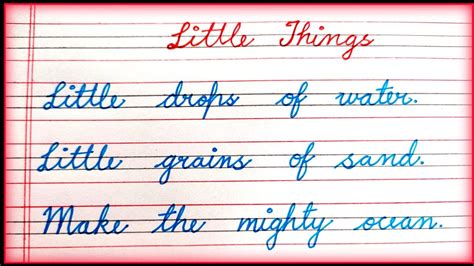 Little Things
Little drops of water.
Little grains of sand.
Make the mighty ocean.